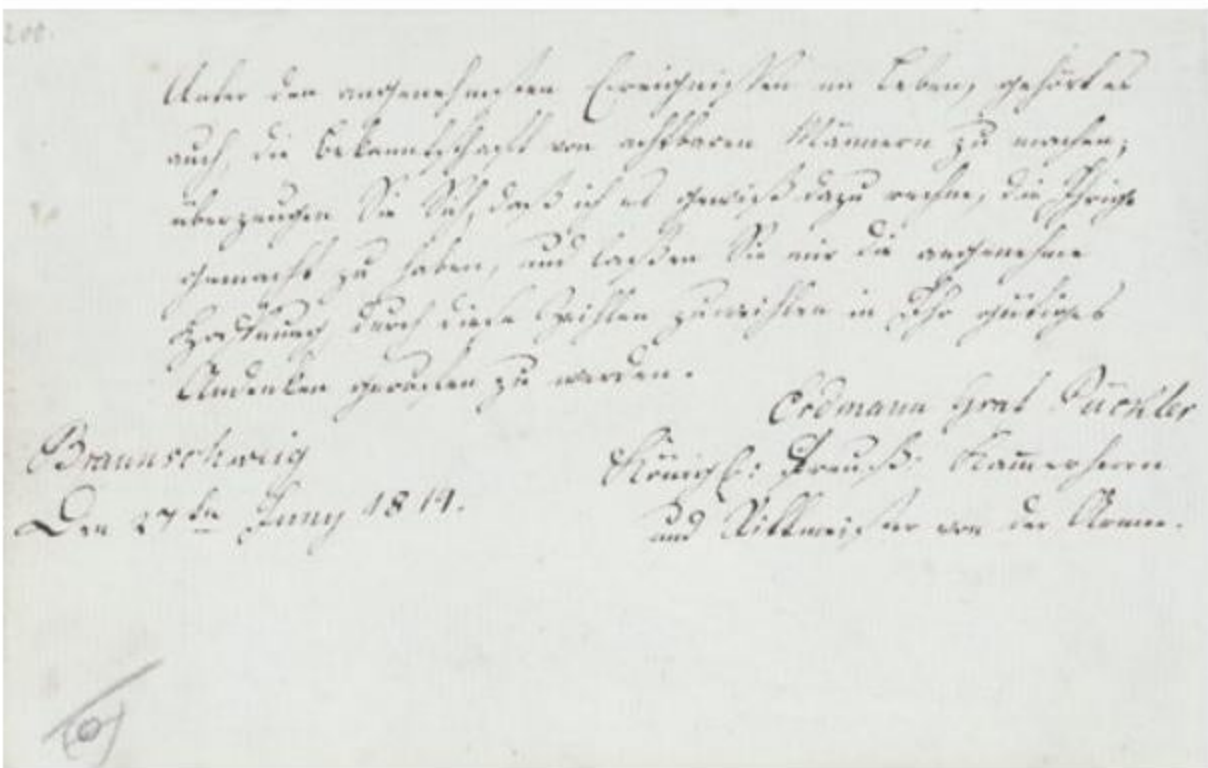 200.
Unter den angenehmsten Ereignißen im Leben, gehört es
auch, die Bekanntschaft von achtbaren Männern zu machen;
überzeugen Sie Sich, daß ich es gewiß dazu rechne, die Ihrige
gemacht zu haben, und laßen Sie mir die angenehme
Hoffnung durch diese Zeihlen zuweihlen in Ihr gütiges
Andenken gerufen zu werden.
Erdmann Graf Pückler
Braunschweig
Königl: Preuß: Kammerherrn
Den 27ten Juny 1819.
und Rittmeister von der Armee.